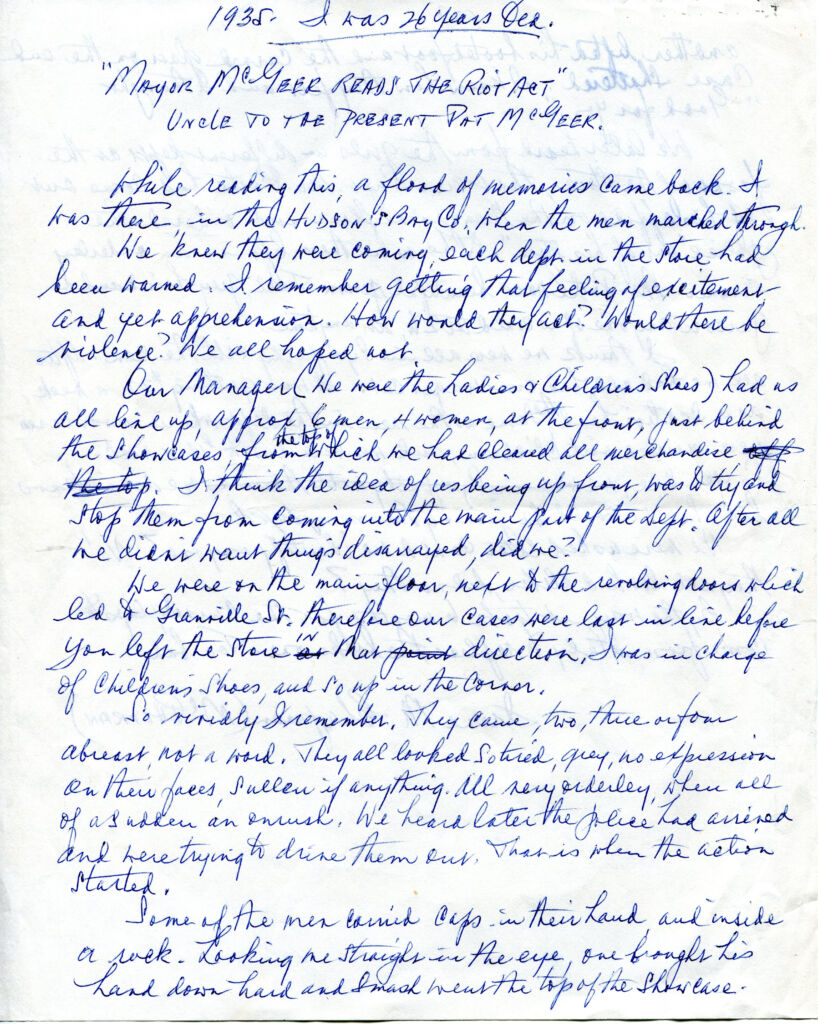 1935- I was 26 years Dec.
"MAYOR McGEER READS THE RIOT ACT"
UNCLE TO THE PRESENT PAT McGEER.
While reading this, a flood of memories came back. I
was there, in the HUDSON'S Bay Co, when the men marched through.
We knew they were coming, each dept. in the store had
been warned. I remember getting that feeling of excitement
and yet apprehension. How would they act? Would there be
violence? We all hoped not.
Our Manager (We were the Ladies & Childrens Shoes) had us
all line up, approx, 6 men, 4 women, at the front, just behind
the showcases from the top of which we had cleared all merchandise off
the top. I think the idea of us being up front, was to try and
stop them from coming into the main part of the dept. After all
we didn't want things disarrayed, did we?
We were on the main floor, next to the revolving doors which
led to Granville St. therefore our cases were last in line before
you left the store at in that point direction. I was in charge
of Childrens Shoes, and so up in the corner.
So vividly I remember. They came, two, three or four
abreast, not a word. They all looked so tired, grey, no expression
on their faces, sullen if anything. All very orderley, when all
of a sudden an onrush. We heard later the police had arrived
and were trying to drive them out. That is when the action
started.
Some of the men carried caps in their hand, and inside
a rock. Looking me straight in the eye, one brought his
hand down hard and smash went the top of the showcase.